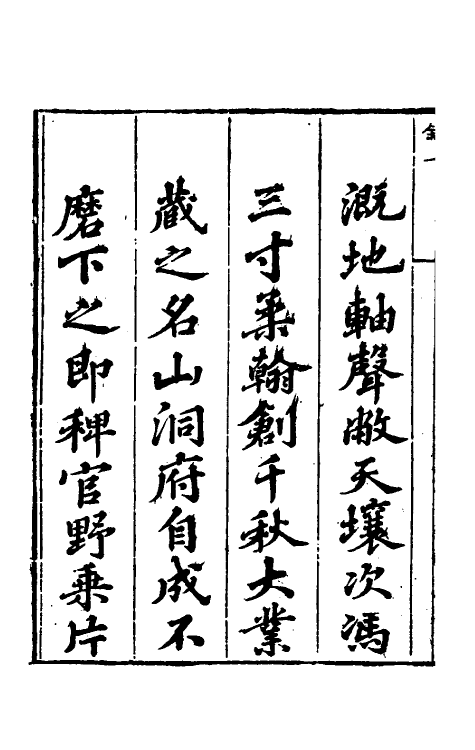 溉地軸聲敝天壤次馮
三寸柔翰創千秋大業
藏之名山洞府自成不
磨下之即稗官野乗片